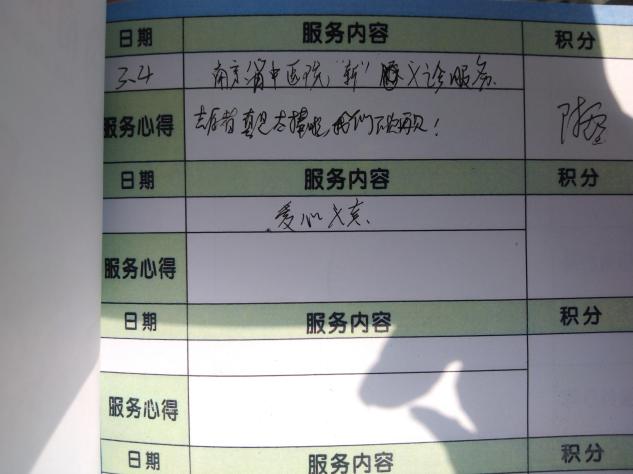 日期 服务内容 积分
3.4 南京省中医院"新" 义诊服务.
服务心得 志愿者真是太棒啦,我们下次再见!
日期 服务内容 积分
爱心义卖.
服务心得
日期 服务内容 积分
服务心得
日期 服务内容 积分